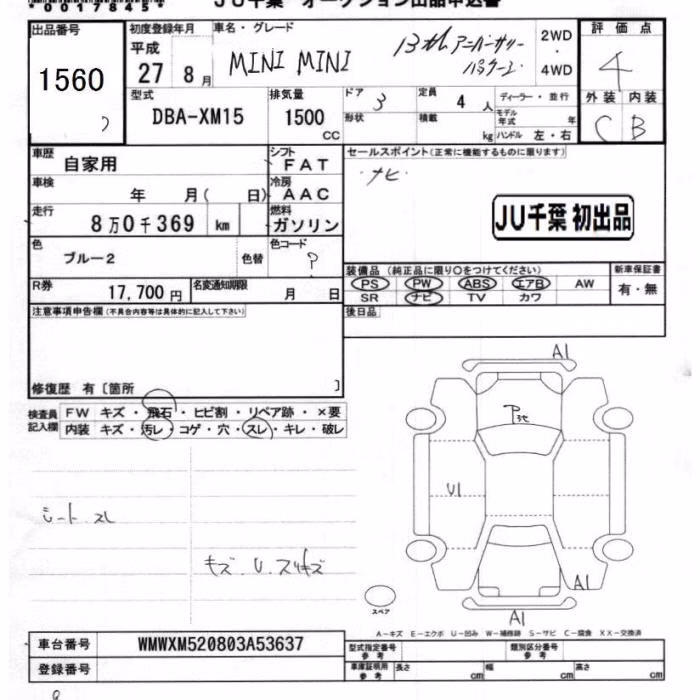 *0017845*
JU千葉 オークション出品申込書
出品番号
1560
初度登録年月
平成
27 8 月
車名・グレード
MINI MINI
アニバーサリー
2WD
・
4WD
評価点
4
外装 内装
C B
型式
DBA-XM15
排気量
1500
CC
ドア
3
定員
4 人
形状
積載
kg
ディーラー・並行
モデル年式 年
ハンドル 左・右
車歴
自家用
シフト
FAT
車検
年 月( 日)
冷房
AAC
走行
8万0千369 km
燃料
ガソリン
色
ブルー2
色替
色コード
?
R券
17,700 円
名変通知期限
月 日
セールスポイント(正常に機能するものに限ります)
・ナビ
JU千葉 初出品
装備品(純正品に限り〇をつけてください)
PS PW ABS エアB AW
SR ナビ TV カワ
新車保証書
有・無
後日品
注意事項申告欄(不具合内容等は具体的に記入して下さい)
修復歴 有〔箇所 〕
検査員記入欄
FW キズ・飛石・ヒビ割・リペア跡・×要
内装 キズ・汚レ・コゲ・穴・スレ・キレ・破レ
シート スレ
キズ.U.スリキズ
A1
U1
A1
A1
スペア
A-キズ E-エクボ U-凹み W-補修跡 S-サビ C-腐食 XX-交換済
車台番号
WMWXM520803A53637
登録番号
型式指定番号
参考
類別区分番号
参考
車庫証明用
参考
長さ cm
幅 cm
高さ cm